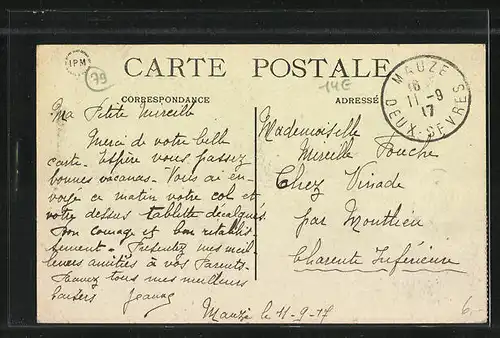 IPM
79
CARTE POSTALE
14E
CORRESPONDANCE
ADRESSÉ
MAUZE
16
11-9
17
DEUX-SEVRES
Ma Petite Mireille
Merci de votre belle
carte - Espère vous passez
bonnes vacances - Vous ai en-
voyé ce matin votre col et
votre dessus tablette décalqués
Bon courage et bon rétablis-
sement - Présentez mes meil-
leures amitiés à vos Parents
tous mes meilleurs
baisers Jeanne
Mauzé le 11-9-17
Mademoiselle
Mireille Fouche
Chez Vinade
par Montlieu
Charente Inférieure
6-